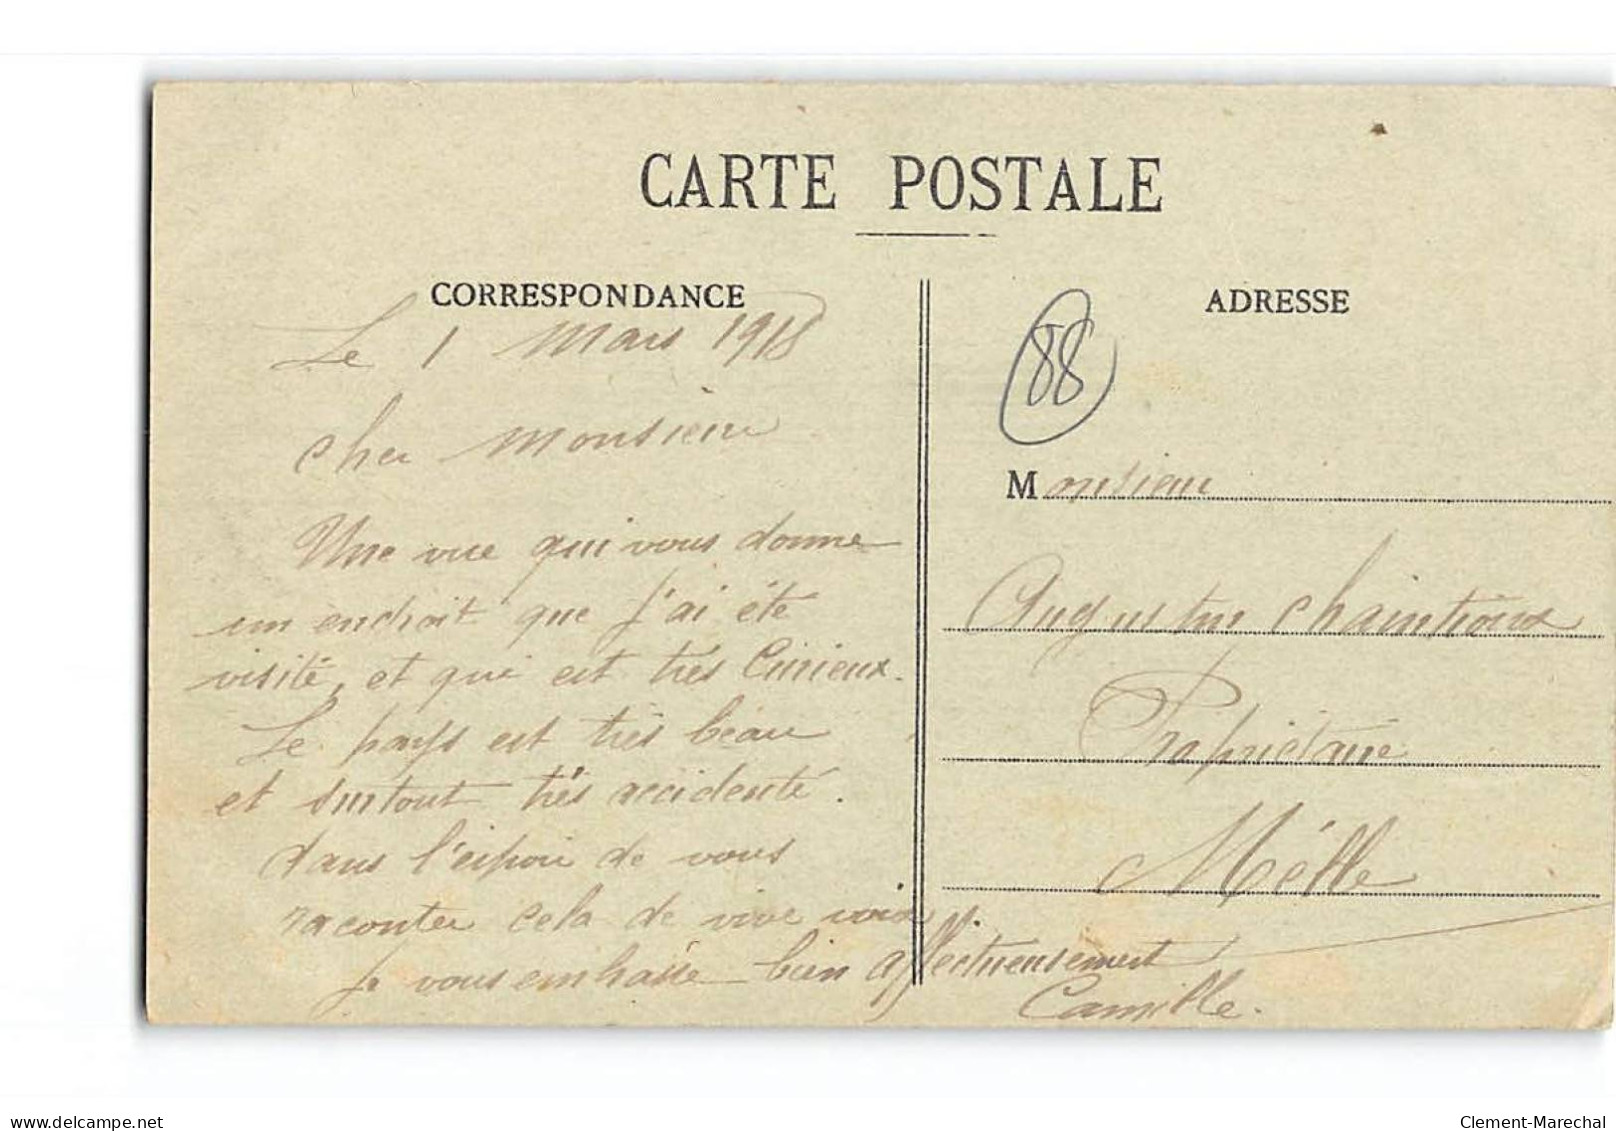 CARTE POSTALE
CORRESPONDANCE
Le 1 Mars 1918
Cher Monsieur
Une vue qui vous donne
un endroit que j'ai été
visité, et qui est très Curieux.
Le pays est très beau
et surtout très accidenté.
dans l'espoir de vous
raconter cela de vive voix
Je vous embrasse bien affectueusement
Camille.
88
ADRESSE
Monsieur
Propriétaire
Mélle
delcampe.net
Clement-Marechal